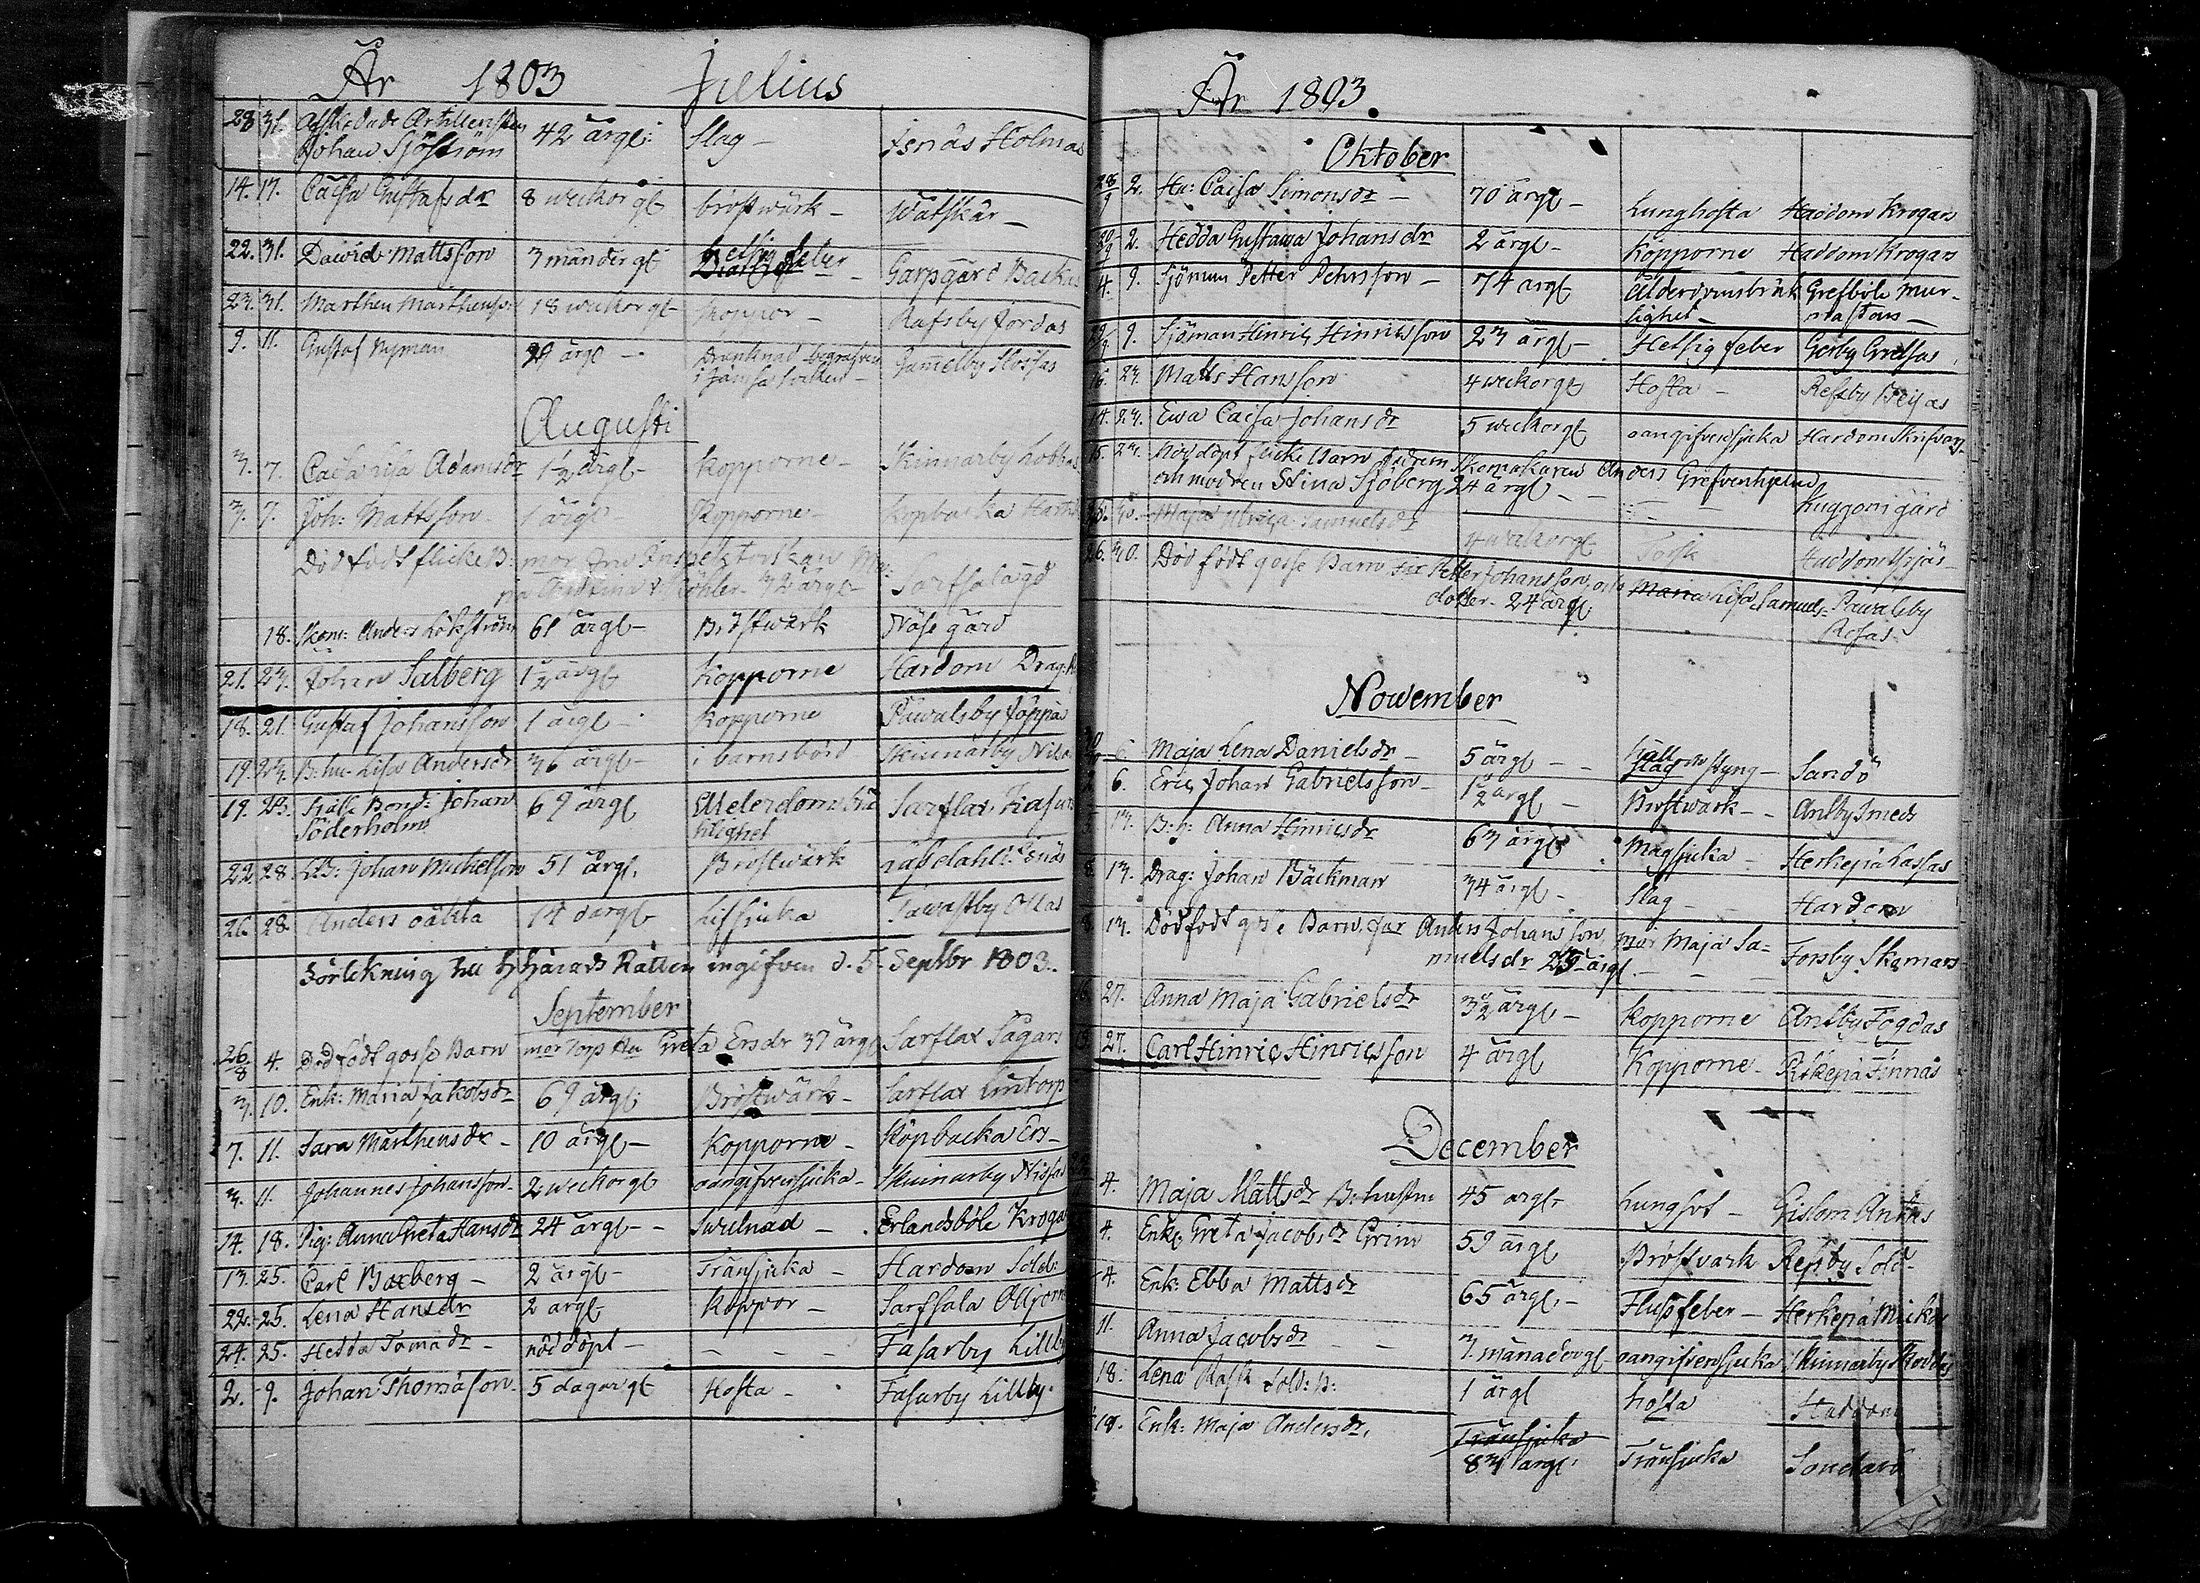 År 1803 Julius
28 31. Afskedade Artilleristen
Johan Sjöström 42 årgl: Slag - Isnäs Holmas
14. 17. Caisa Gustafsdr 8 weckor gl - bröstwärk - Wätskär -
22. 31. Dawid Mattsson 3 månder gl Hetsig feber - Garpgård Backas
23. 31. Marthen Marthensson 18 weckor gl - Koppor - Rafsby Jordas
9. 11. Gustaf Nyman årgl - Drunknad begrafven
i socken - Gammelby Skossas
Augusti
3. 7. Caisa Lisa Adamsdr 1 1/2 årgl - kopporne - Skinnarby Lobbas
3. 7. Joh: Mattsson 1 årgl Kopporne - Kopbacka
Död född flicke B: mor fru Inspektorskan
Köhler - 32 årgl - Sarfsalagd
18. Anders Lökström 61 årgl - Bröstwärk Näse gård
21. 23. Johan Salberg 1 1/2 årgl Kopporne Hardom Drag:
18. 21. Gustaf Johansson 1 årgl - kopporne Påwalsby Joppas
19. 23. B: hu: Lisa Andersdr 36 årgl - i barnsbörd Skinnarby Nils
19. 23. Bond: Johan
Söderholm 69 årgl Ålderdoms
lighet Sarflax
22. 28. Johan Michelsson 51 årgl. Bröstwärk
26. 28. Anders oäkta 14 dar gl - Lifsjuka Tawastby Ollas
Förtekning till Härads Rätten ingifven d. 5 - Septbr 1803.
September
26/8 4. Död födt gosse Barn mor Torp Hu Greta Ersdr 37 årgl Sarflax Sågars
3. 10. Enk: Maria Jakobsdr 69 årgl: Bröstwärk - Sarflax Lintorp
7. 11. Sara Marthensdr - 10 årgl - Kopporne - Köpbacka Ers -
3. 11. Johannes Johansson - 2 weckor gl oangifven sjuka - Skinnarby Nissas
14. 18. Pig: Anna Greta Hansdr 24 årgl - - Swulnad - Erlandsböle Krogas
13. 25. Carl Boxberg - 2 årgl - Tränsjuka - Hardom Sold:
22. 25. Lena Hansdr 2 årgl - Koppor - Sarfsala
24. 25. Hedda Tomadr - nöddöpt - - - - Fasarby Lillby
2. 9. Johan Thomason - 5 dagar gl - Hosta - Fasarby Lillby.
År 1803.
Oktober
28/9 2. Hu: Caisa Simonsdr - 70 årgl - Lunghosta Haddom Krogars
2. Hedda Gustawa Johansdr 2 årgl - Kopporne Haddom Krogars
4. 9. Sjöman Petter Pehrsson - 74 årgl Ålderdomsbräk
lighet - Grefböle Mur-
mästars -
9. Sjöman Hinric Hinricsson 23 årgl - Hetsig feber Gerby Gretsas
16. 23. Matts Hansson 4 weckor gl Hosta - Refsby Beijas
14. 23. Ewa Caisa Johansdr 5 weckor gl oangifven sjuka Hardom Skrifvars -
15. 23. Nöddöpt flicke Barn fadren Skomakaren Anders Grefvenhielm
och modren Stina Sjöberg 24 årgl - - - - Kuggom gård
Maja Ulrica Samuelsdr 4 weckor gl Torsk
26. 30. Död född gosse Barn far Petter Johansson, och Lisa Samuels-
dotter - 24 årgl. Påwalsby
Rosas
Nowember
6 Maja Lena Danielsdr - 5 årgl - - håll och styng - Sandö
2 6. Eric Johan Gabrielsson - 1 1/2 årgl - Bröstwärk - - Antby Smeds
13. B: h: Anna Hinricsdr 63 årgl Magsjuka - Herkepä Lassas
8. 13. Drag: Johan Bäckman 34 årgl - Slag - Hardom
8. 13. Död född gosse Barn, far Anders Johansson, mor Maja Sa=
muelsdr 25 årgl. - - - Forsby Skomars
27. Anna Maja Gabrielsdr 3 1/2 årgl - kopporne Antby Fogdas
27. Carl Hinric Hinricsson 4 årgl Kopporne - Finnas
December
4. Maja Mattsdr B: hustru 45 årgl - Lungsot - Gislom Antas
4. Enk: Greta Jacobsdr Grim 59 årgl Bröstvark Refsby Sold -
4. Enk: Ebba Mattsdr 65 årgl - Flussfeber - Herkepä Mickos
11. Anna Jacobsdr - - 3 månader gl - oangifven sjuka Skinnarby
18. Lena Rask Sold: B: 1 årgl hosta Haddom
19. Enk: Maja Andersdr. Tränsjuka
83 årgl. Tränsjuka